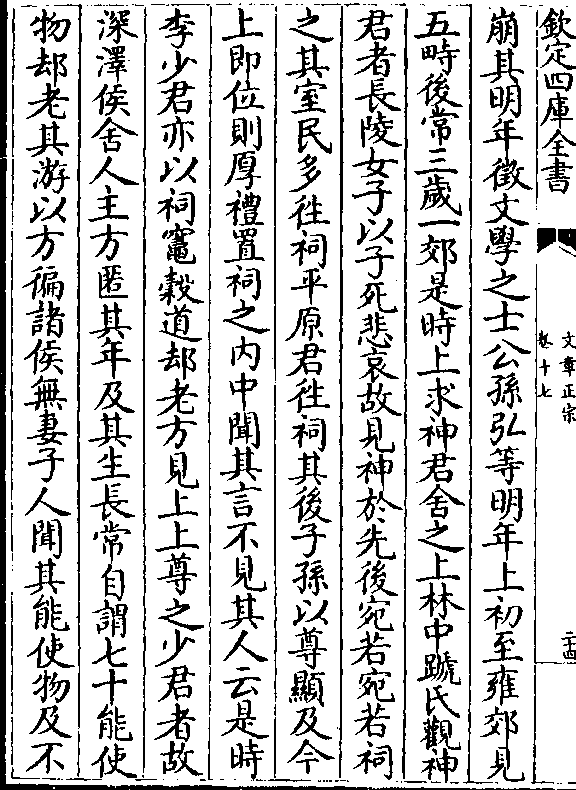 欽定四庫全書
文章正宗
卷十七
二十四
崩其明年徵文學之士公孫弘等明年上初至雍郊見
五畤後常三歲一郊是時上求神君舍之上林中蹏氏觀神
君者長陵女子以子死悲哀故見神於先後宛若宛若祠
之其室民多徃祠平原君徃祠其後子孫以尊顯及今
上即位則厚禮置祠之内中聞其言不見其人云是時
李少君亦以祠竈穀道却老方見上上尊之少君者故
深澤侯舍人主方匿其年及其生長常自謂七十能使
物却老其游以方徧諸侯無妻子人聞其能使物及不